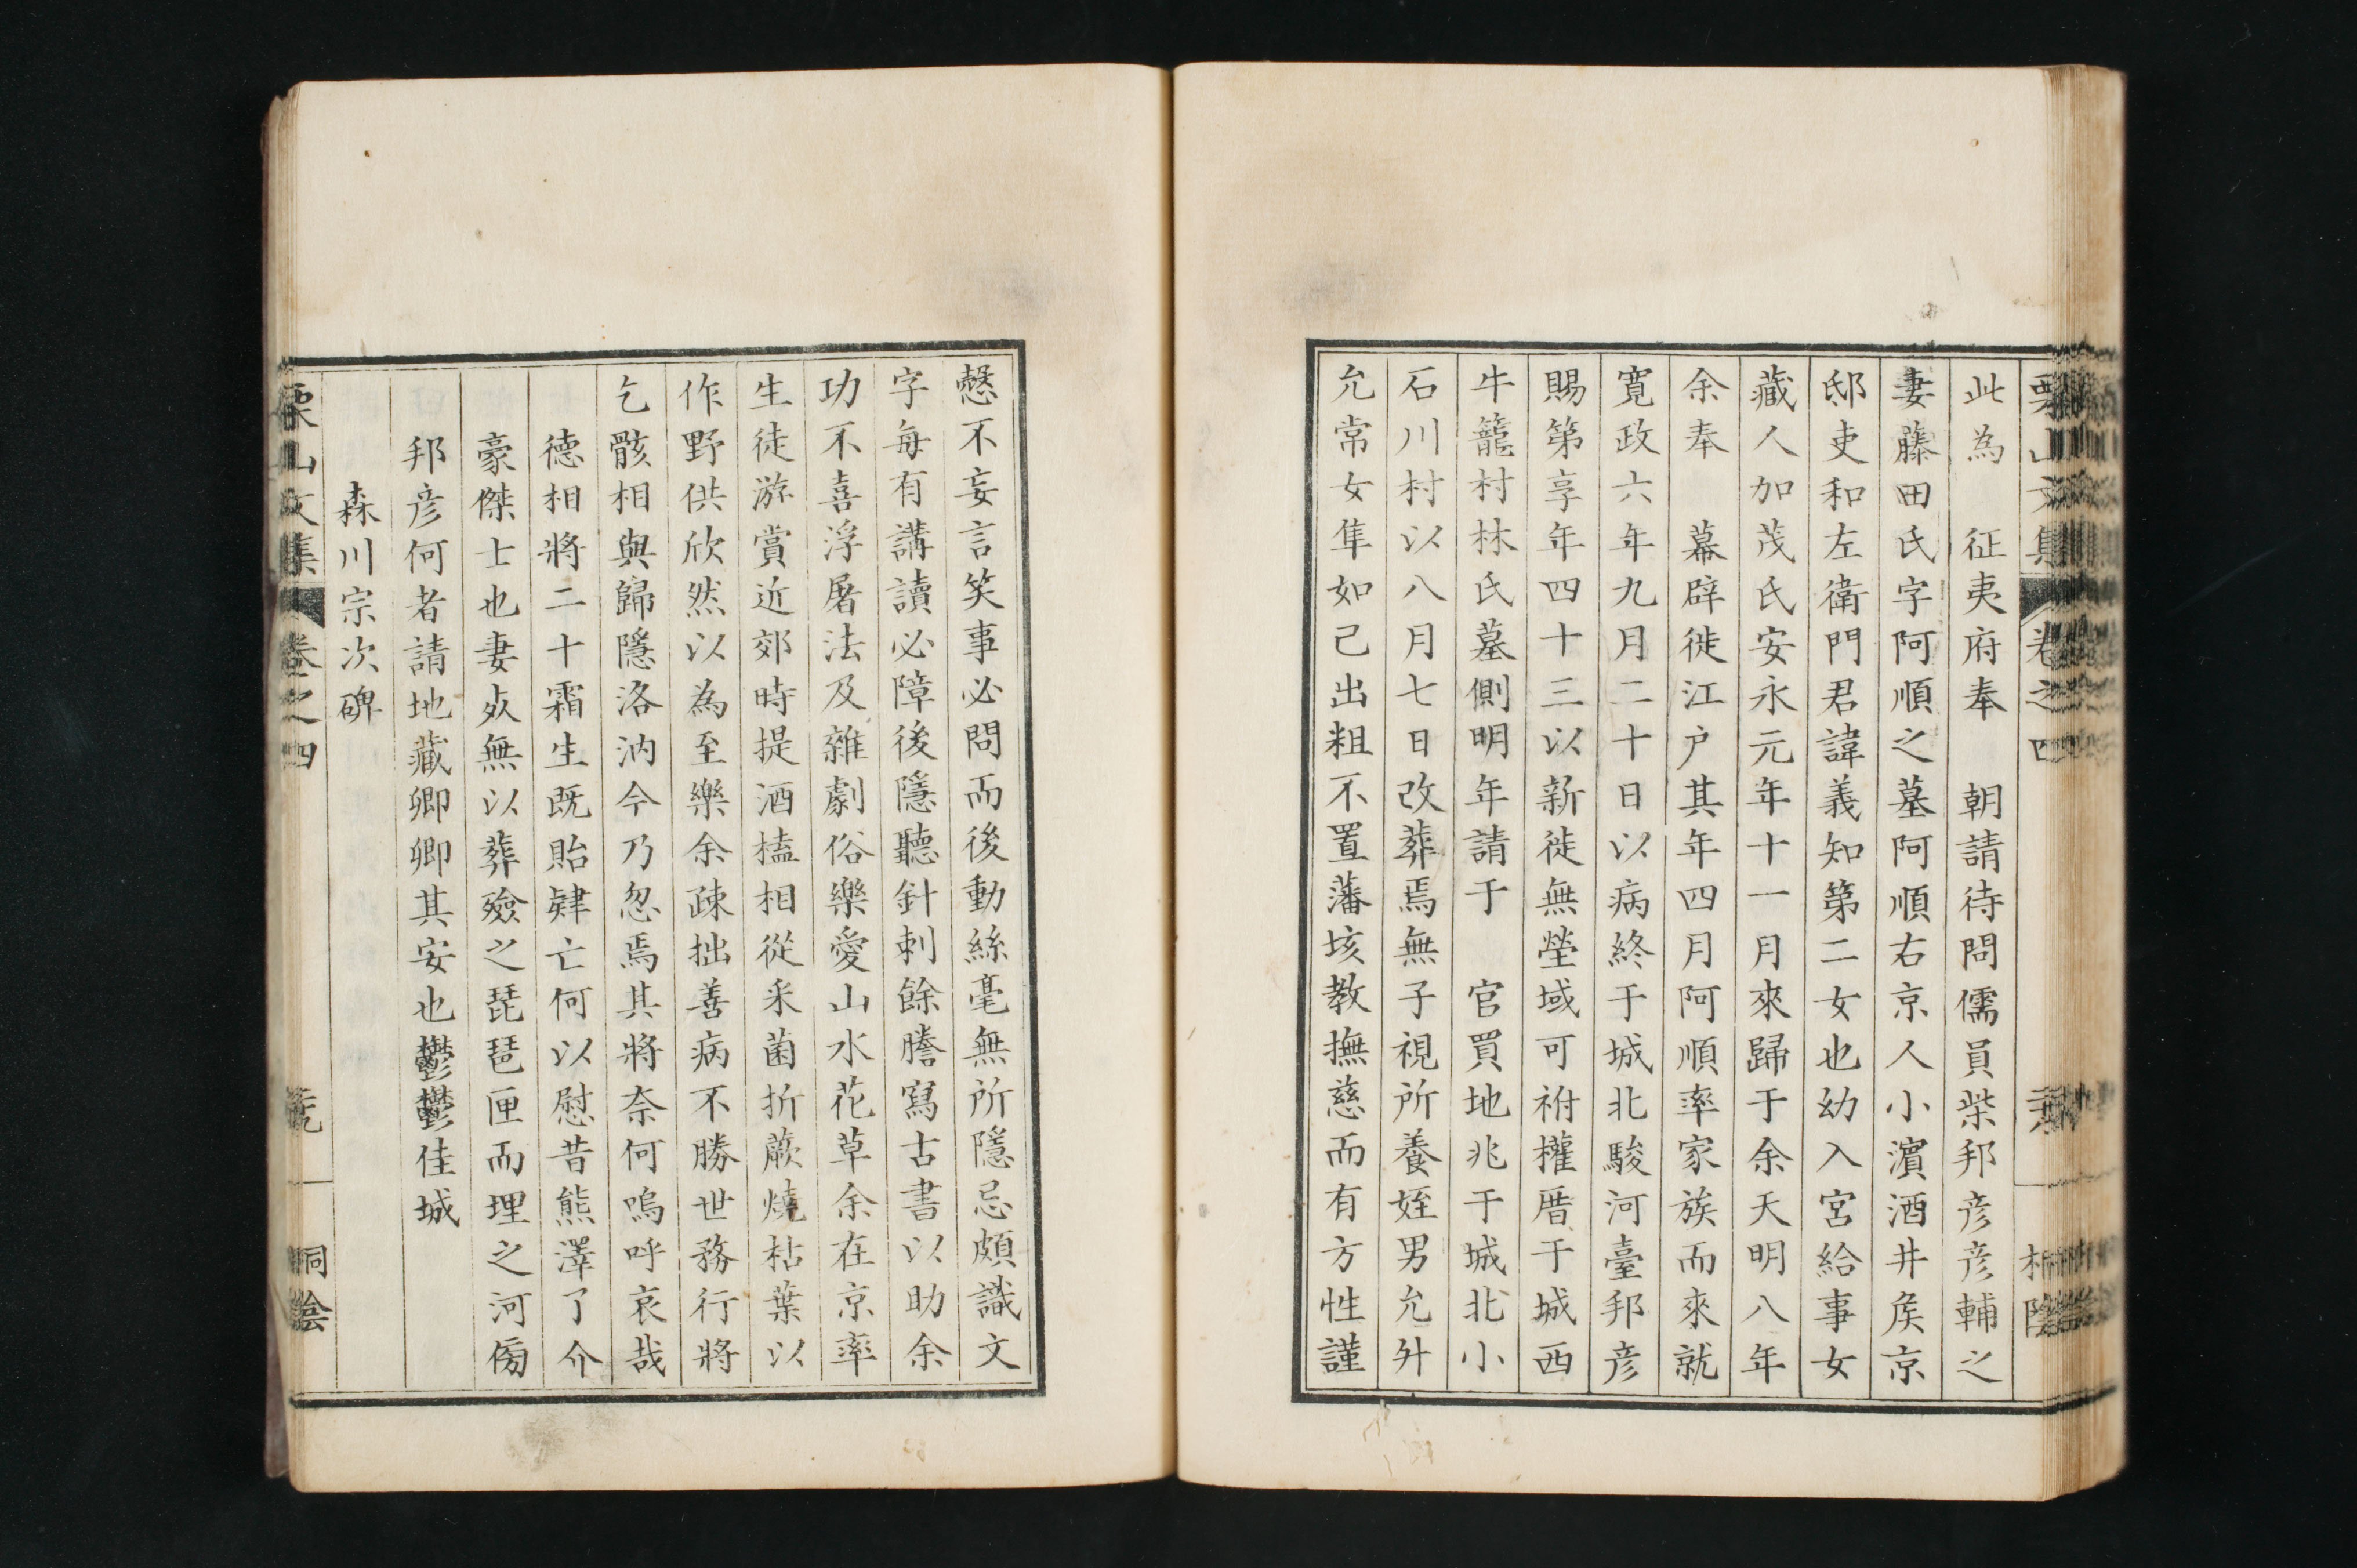 此為　征夷府奉　朝請待問儒員柴邦彦彦輔之
妻藤田氏字阿順之墓阿順右京人小濵酒井矦京
邸吏和左衛門君諱義知第二女也幼入宮給事女
藏人加茂氏安永元年十一月來歸于余天明八年
余奉　幕辟徙江户其年四月阿順率家族而來就
寛政六年九月二十日以病終于城北駿河臺邦彦
賜第享年四十三以新徙無塋域可祔權厝于城西
牛籠村林氏墓側明年請于　官買地兆于城北小
石川村以八月七日改葬焉無子視所養姪男允升
允常女隼如己出粗不置藩垓教撫慈而有方性謹
慤不妄言笑事必問而後動絲毫無所隱忌頗識文
字每有講讀必障後隱聽針刺餘謄寫古書以助余
功不喜浮屠法及雜劇俗樂愛山水花草余在京率
生徒游賞近郊時提酒榼相從釆菌折蕨燒枯葉以
作野供欣然以為至樂余疎拙善病不勝世務行將
乞骸相與歸隱洛汭今乃忽焉其將奈何嗚呼哀哉
德相將二十霜生既貽肄亡何以慰昔熊澤了介
豪傑士也妻歿無以葬殮之琵琶匣而埋之河傍
邦彦何者請地藏卿卿其安也鬱鬱佳城
森川宗次碑
栗山文集　卷之四　桐陰